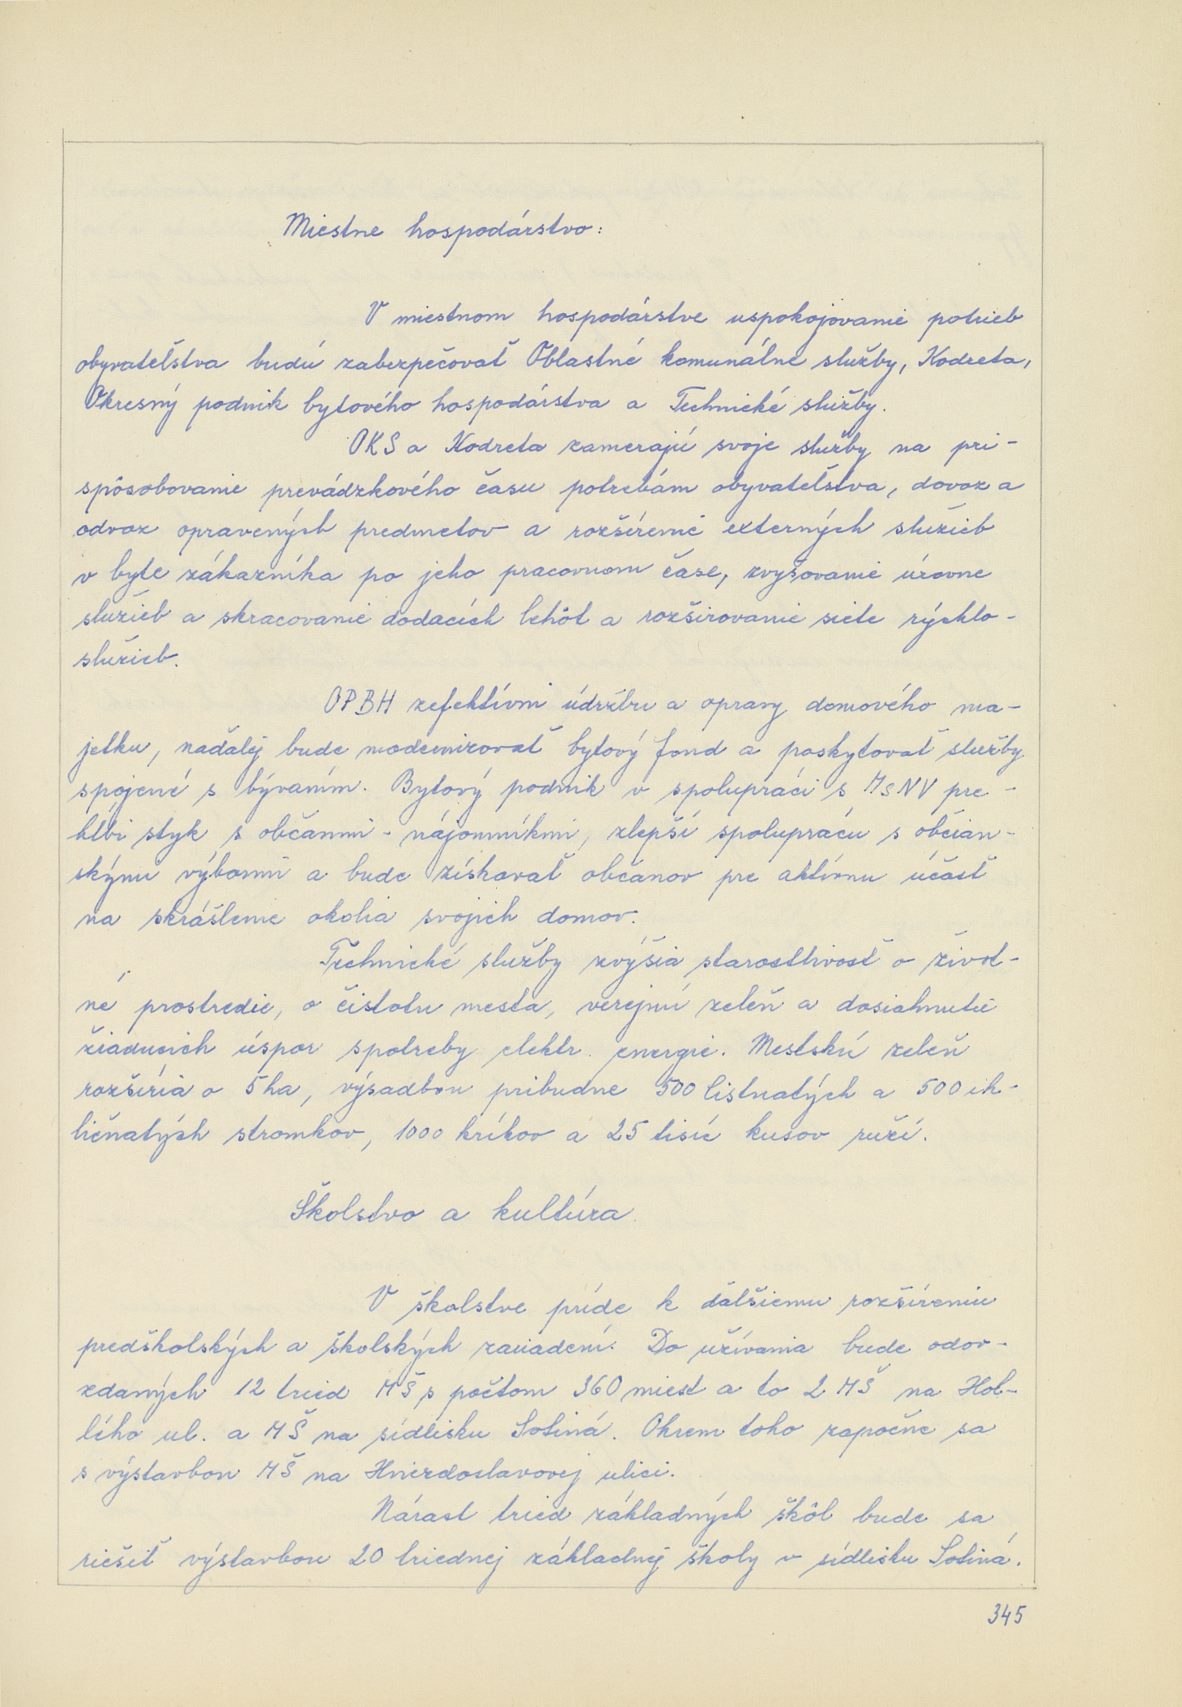 Miestne hospodárstvo:
V miestnom hospodárstve uspokojovanie potrieb
obyvateľstva budú zabezpečovať Oblastné komunálne služby, Kodreta,
Okresný podnik bytového hospodárstva a Technické služby.
OKS a Kodreta zamerajú svoje služby na pri-
spôsobovanie prevádzkového času potrebám obyvateľstva, dovoz a
odvoz opravených predmetov a rozšírenie externých služieb
v byte zákazníka po jeho pracovnom čase, zvyšovanie úrovne
služieb a skracovanie dodacích lehôt a rozširovanie siete rýchlo-
služieb.
OPBH zefektívni údržbu a opravy domového ma-
jetku, naďalej bude modernizovať bytový fond a poskytovať služby
spojené s bývaním. Bytový podnik v spolupráci s MsNV pre-
hĺbi styk s občanmi - nájomníkmi, zlepší spoluprácu s občian-
skými výbormi a bude získavať občanov pre aktívnu účasť
na skrášlenie okolia svojich domov.
Technické služby zvýšia starostlivosť o život-
né prostredie, o čistotu mesta, verejnú zeleň a dosiahnutie
žiaducich úspor spotreby elektr. energie. Mestskú zeleň
rozšíria o 5 ha, výsadbou pribudne 500 listnatých a 500 ih-
ličnatých stromkov, 1000 kríkov a 25 tisíc kusov ruží.
Školstvo a kultúra.
V školstve príde k ďalšiemu rozšíreniu
predškolských a školských zariadení. Do užívania bude odov-
zdaných 12 tried MŠ s počtom 360 miest a to 2 MŠ na Hol-
lého ul. a MŠ na sídlisku Sotiná. Okrem toho započne sa
s výstavbou MŠ na Hviezdoslavovej ulici.
Nárast tried základných škôl bude sa
riešiť výstavbou 20 triednej základnej školy v sídlisku Sotiná.
345